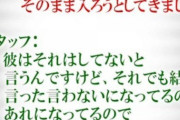 そのまま入ろうとしてきまし
タッフ：
彼はそれはしてないと
言うんですけど、それでも結
言った言わないになってるの
あれになってるので